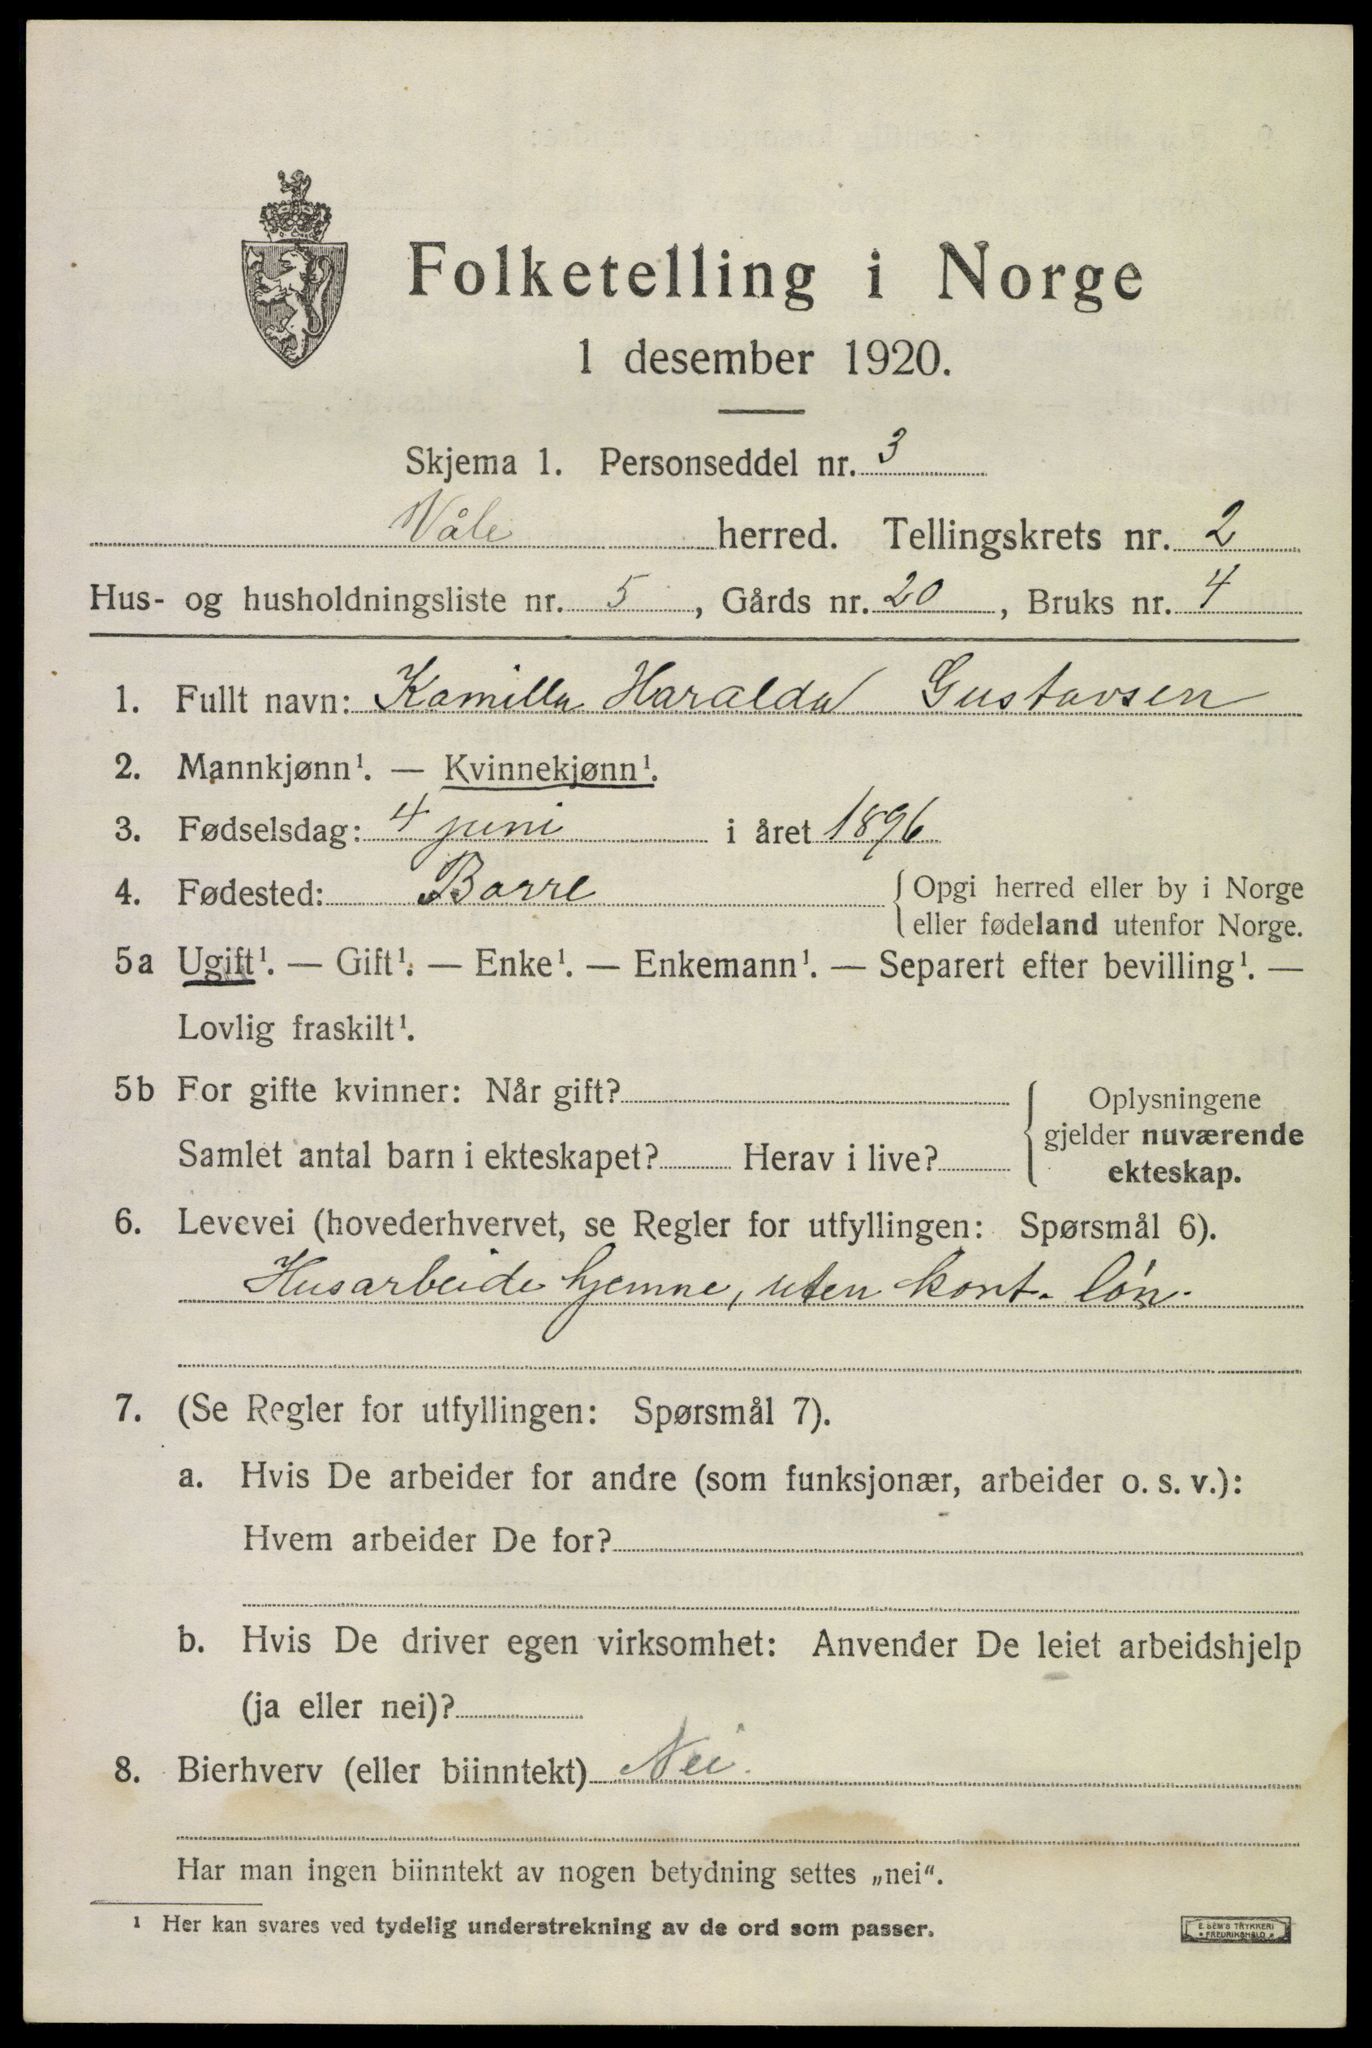 Folketelling i Norge
1 desember 1920.
Skjema 1. Personseddel nr. 3
Våle herred. Tellingskrets nr. 2
Hus- og husholdningsliste nr. 5, Gårds nr. 20, Bruks nr. 4
1. Fullt navn: Kamilla Haralda Gustavsen
2. Mannkjønn¹. — Kvinnekjønn¹.
3. Fødselsdag: 4 juni i året 1896
4. Fødested: Borre { Opgi herred eller by i Norge
eller fødeland utenfor Norge.
5a Ugift¹. — Gift¹. — Enke¹. — Enkemann¹. — Separert efter bevilling¹. —
Lovlig fraskilt¹.
5b For gifte kvinner: Når gift? { Oplysningene
gjelder nuværende
Samlet antal barn i ekteskapet? Herav i live?
ekteskap.
6. Levevei (hovederhvervet, se Regler for utfyllingen: Spørsmål 6).
Husarbeide hjemme, uten kont. løn.
7. (Se Regler for utfyllingen: Spørsmål 7).
a. Hvis De arbeider for andre (som funksjonær, arbeider o. s. v.):
Hvem arbeider De for?
b. Hvis De driver egen virksomhet: Anvender De leiet arbeidshjelp
(ja eller nei)?
8. Bierhverv (eller biinntekt) Nei.
Har man ingen biinntekt av nogen betydning settes „nei“.
¹ Her kan svares ved tydelig understrekning av de ord som passer.
E. SEM'S TRYKKERI
* FREDRIKSHALD *